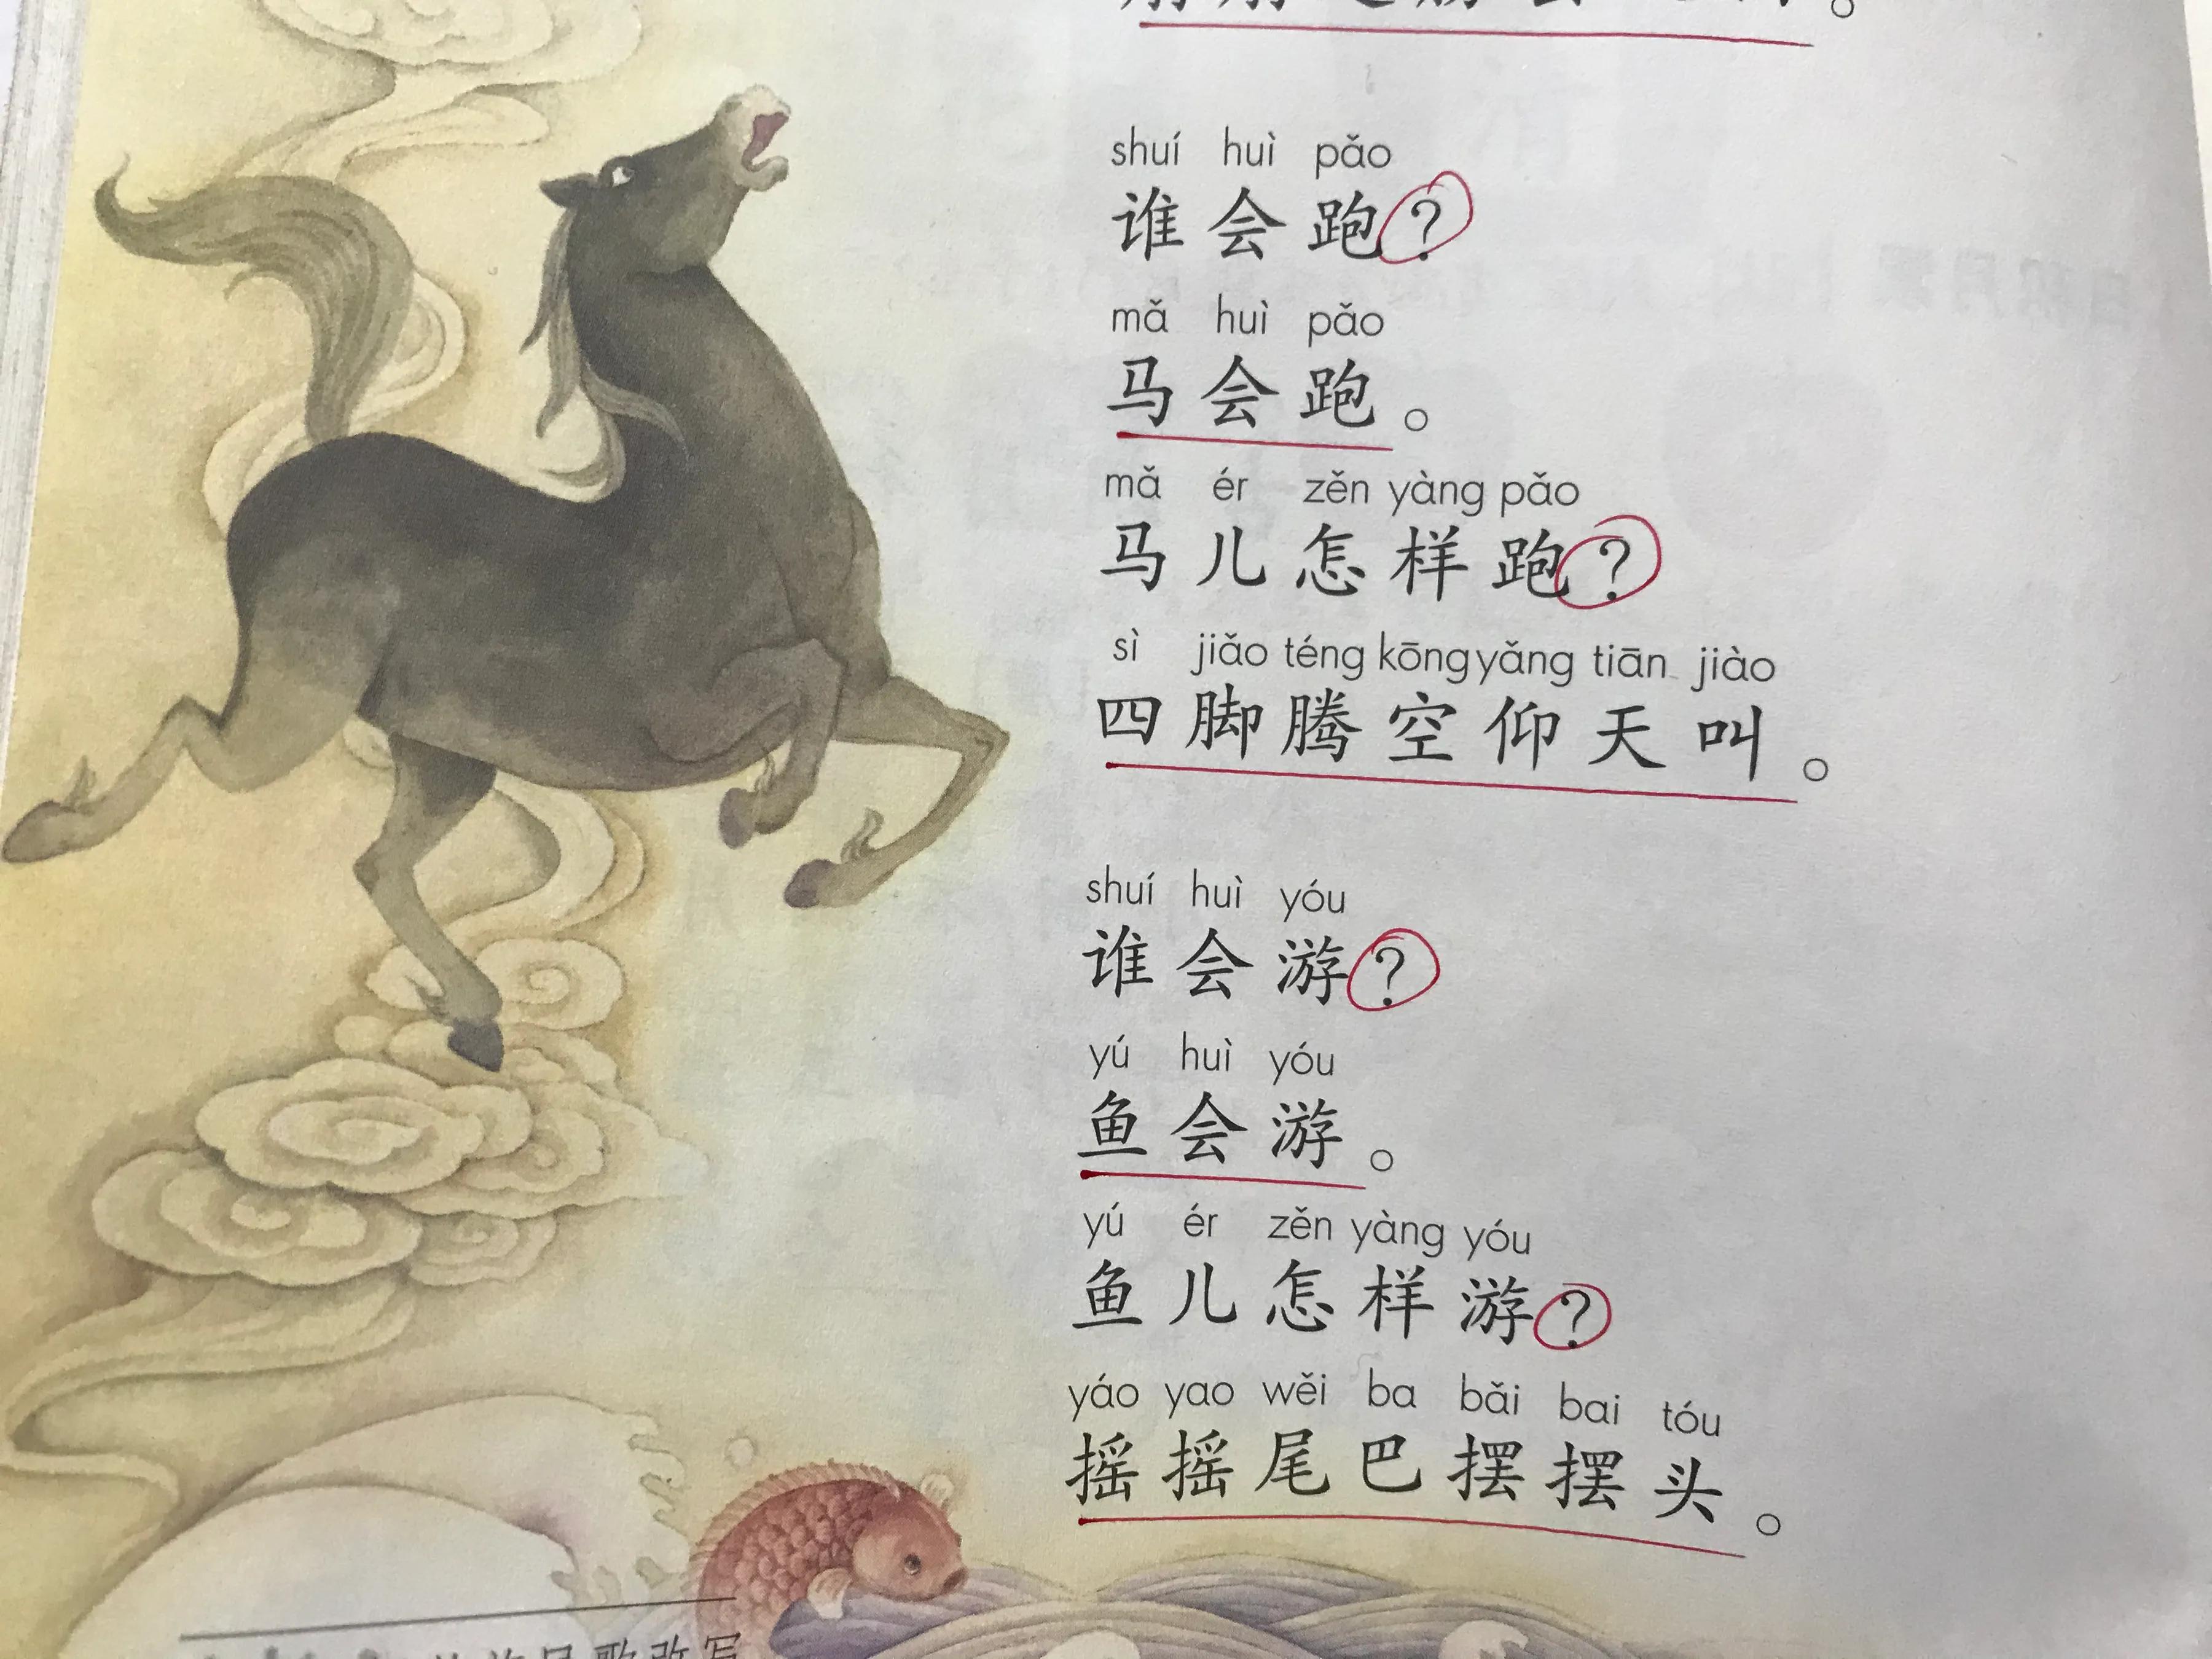 shuí huì pǎo
谁会跑？
mǎ huì pǎo
马会跑。
mǎ ér zěn yàng pǎo
马儿怎样跑？
sì jiǎo téng kōng yǎng tiān jiào
四脚腾空仰天叫。
shuí huì yóu
谁会游？
yú huì yóu
鱼会游。
yú ér zěn yàng yóu
鱼儿怎样游？
yáo yao wěi ba bǎi bai tóu
摇摇尾巴摆摆头。
民歌改写